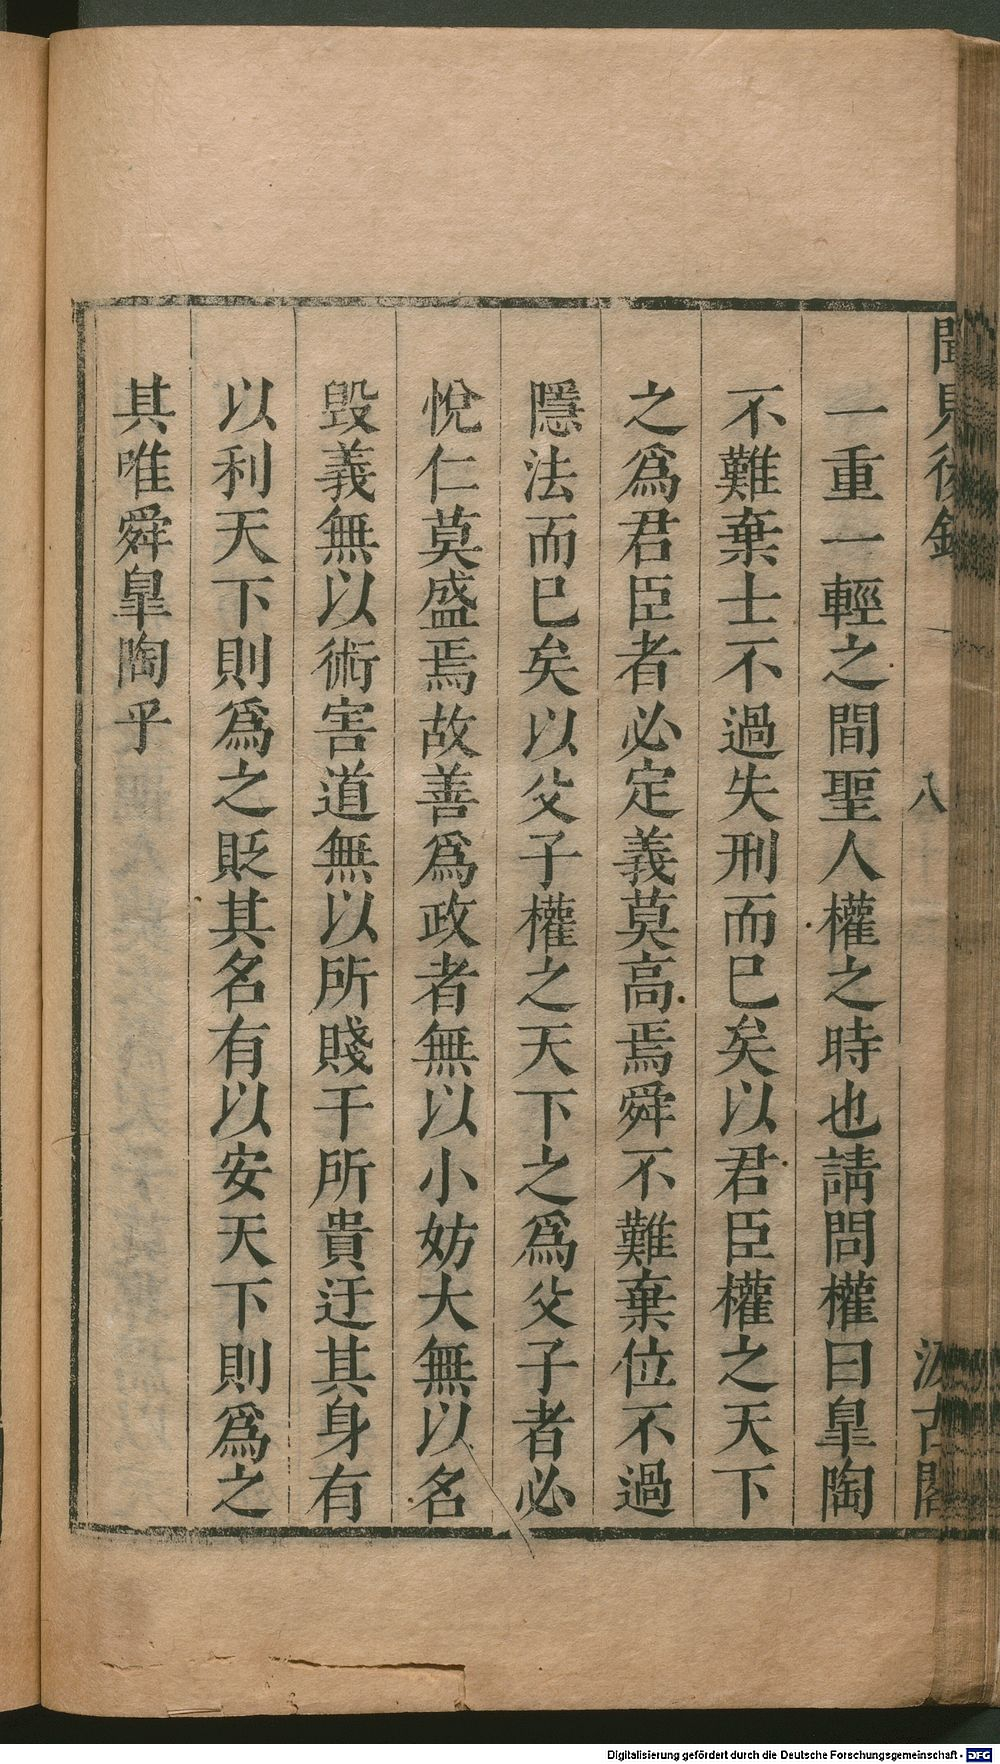 聞見後錄
八
汲古閣
一重一輕之間聖人權之時也請問權曰皐陶
不難棄士不過失刑而已矣以君臣權之天下
之爲君臣者必定義莫高焉舜不難棄位不過
隱法而已矣以父子權之天下之爲父子者必
悅仁莫盛焉故善爲政者無以小妨大無以名
毀義無以術害道無以所賤干所貴迂其身有
以利天下則爲之貶其名有以安天下則爲之
其唯舜皐陶乎
Digitalisierung gefördert durch die Deutsche Forschungsgemeinschaft - DFG